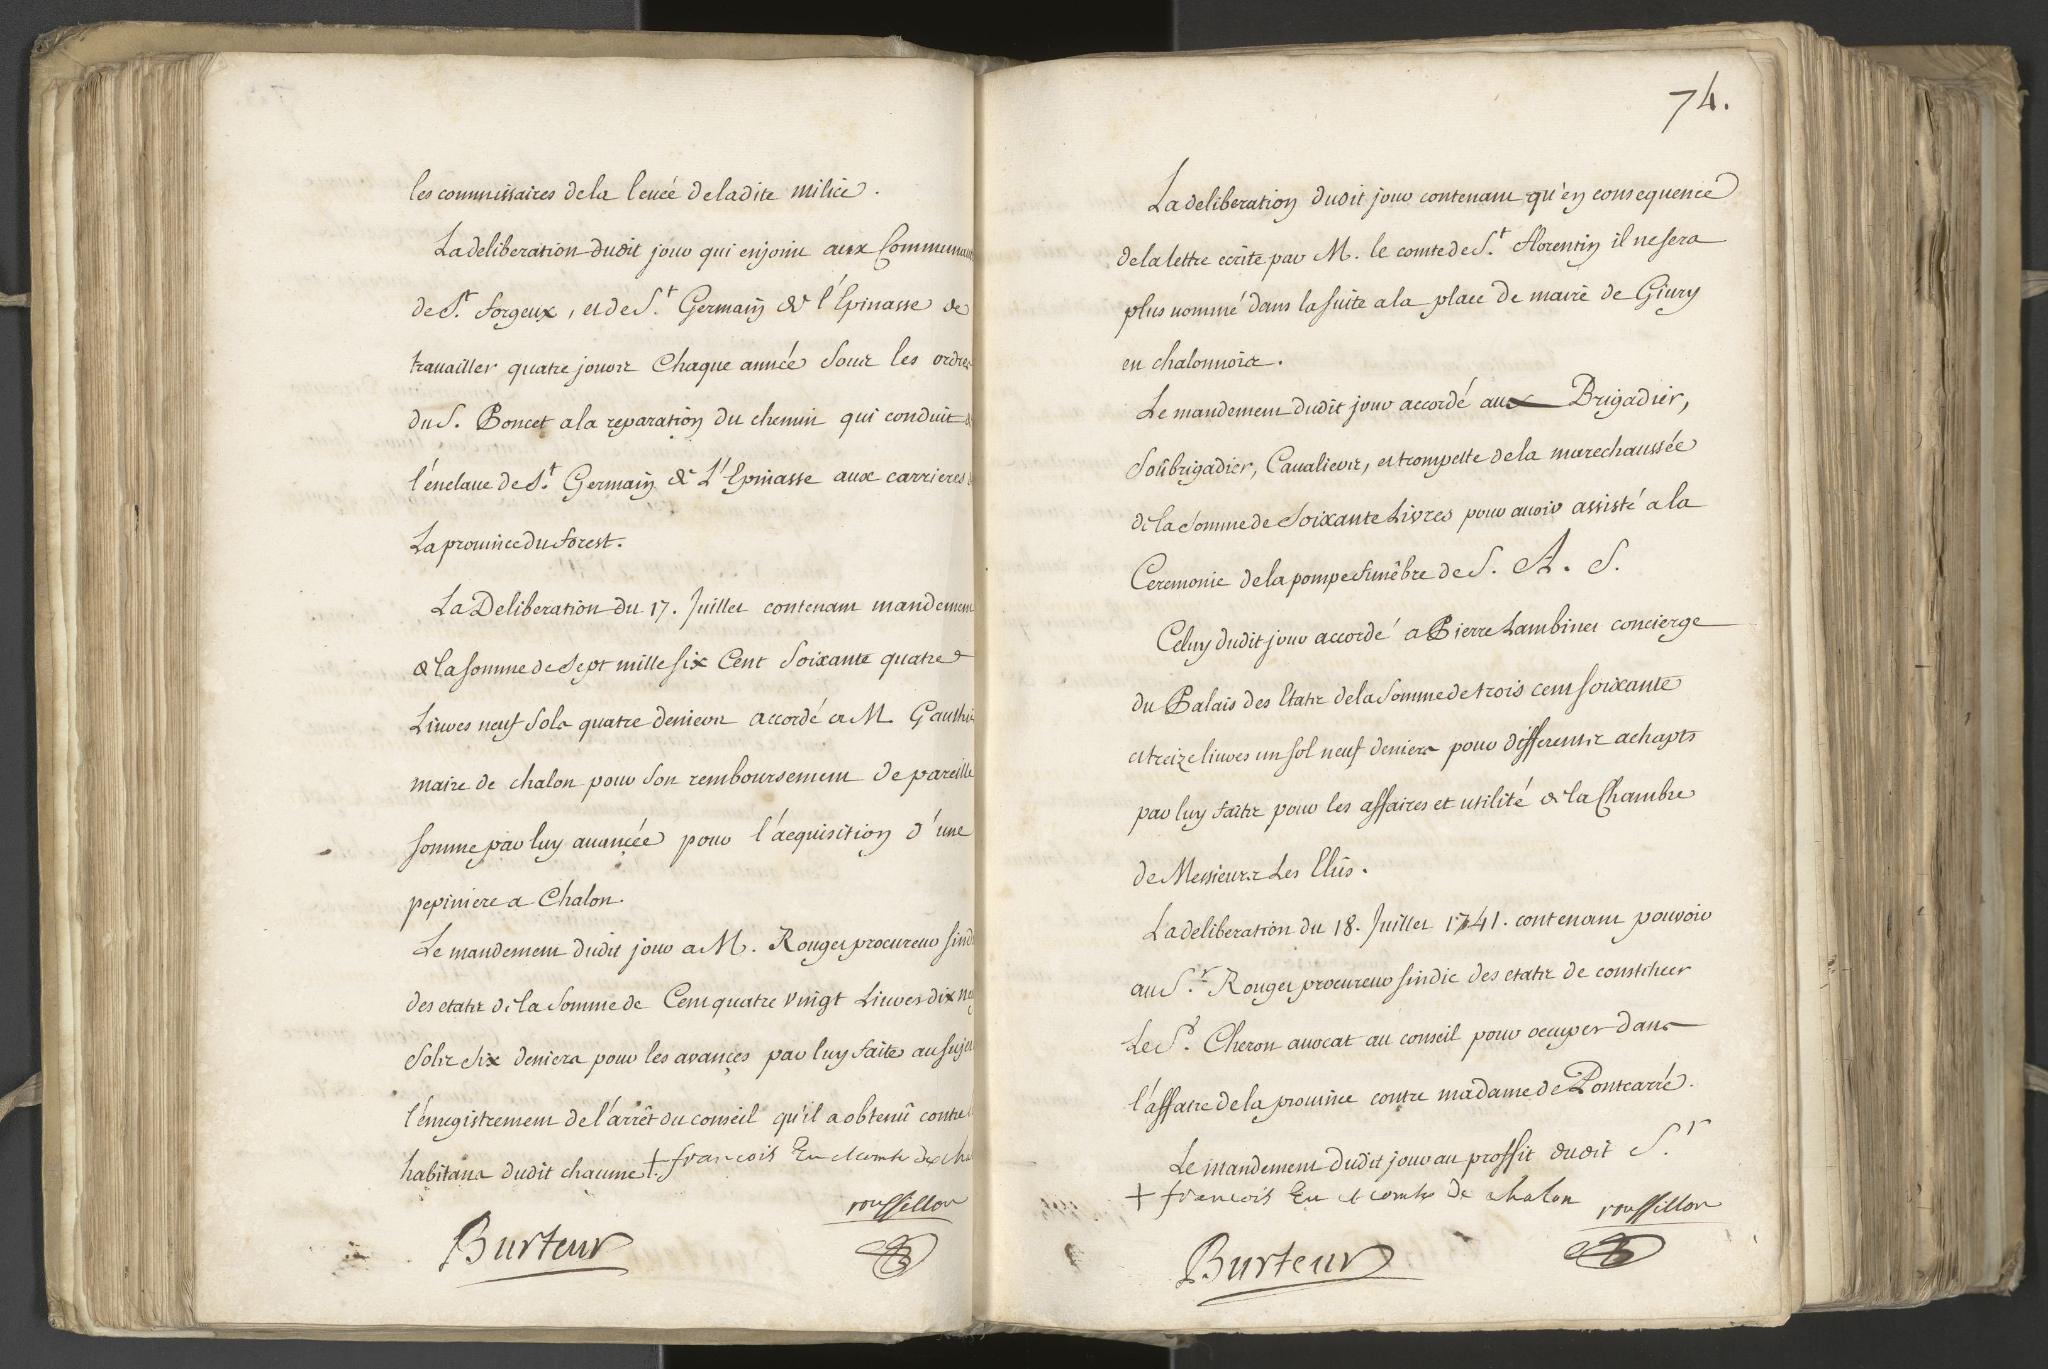 les commissaires de la leueé de ladite milice.
La deliberation dudit jour qui enjoint aux Communaut
de St. forgeux, et de St. Germain de l'Epinasse de
trauailler quatre jours Chaque anneé Sous les ordres
du S. Poncet a la reparation du chemin qui conduit de
l'énclaue de St. Germain de L'Epinasse aux carrieres de
La prouince du forest.
La Deliberation du 17. Juillet contenant mandement
de la somme de Sept mille six Cent Soixante quatre
Liures neuf Sols quatre deniers accordé a M. Gauthie
maire de chalon pour Son remboursement de pareille
somme par luy auanceé pour l'acquisition d'une
pepiniere a Chalon.
Le mandement dudit jour a M. Rouget procureur sindi
des etats de la Somme de Cent quatre vingt Liures dix neu
Sols Six deniers pour les avances par luy faites au sujet
l'énregistrement de l'arrêt du conseil qu'il a obtenû contre l
habitans dudit chaume.
+ françois Eu et comte de cha
roussillon
Burteur
74.
La deliberation dudit jour contenant qu'en consequence
de la lettre ecrite par M. le comte de St. florentin il ne sera
plus nommé dans la suite a la place de maire de Giury
en chalonnois.
Le mandement dudit jour accordé aux Brigadier,
Soûbrigadier, Caualiers, et trompette de la marechausseé
de la Somme de Soixante Livres pour auoir assisté a la
Ceremonie de la pompe funêbre de S. A. S.
Celuy dudit jour accordé a Pierre Lambinet concierge
du Palais des Etats de la Somme de trois cent soixante
et treize liures un sol neuf deniers pour differents achapts
par luy faits pour les affaires et utilité de la Chambre
de Messieurs Les Elûs.
La deliberation du 18. Juillet 1741. contenant pouvoir
au Sr. Rouget procureur sindic des etats de constituer
Le Sr. Cheron auocat au conseil pour occuper dans
l'affaire de la prouince contre madame de Pontcarré.
Le mandement dudit jour au proffit dudit Sr.
+ françois Eu et comte de chalon
roussillon
Burteur